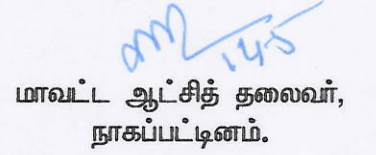 14-5
மாவட்ட ஆட்சித் தலைவர்,
நாகப்பட்டினம்.